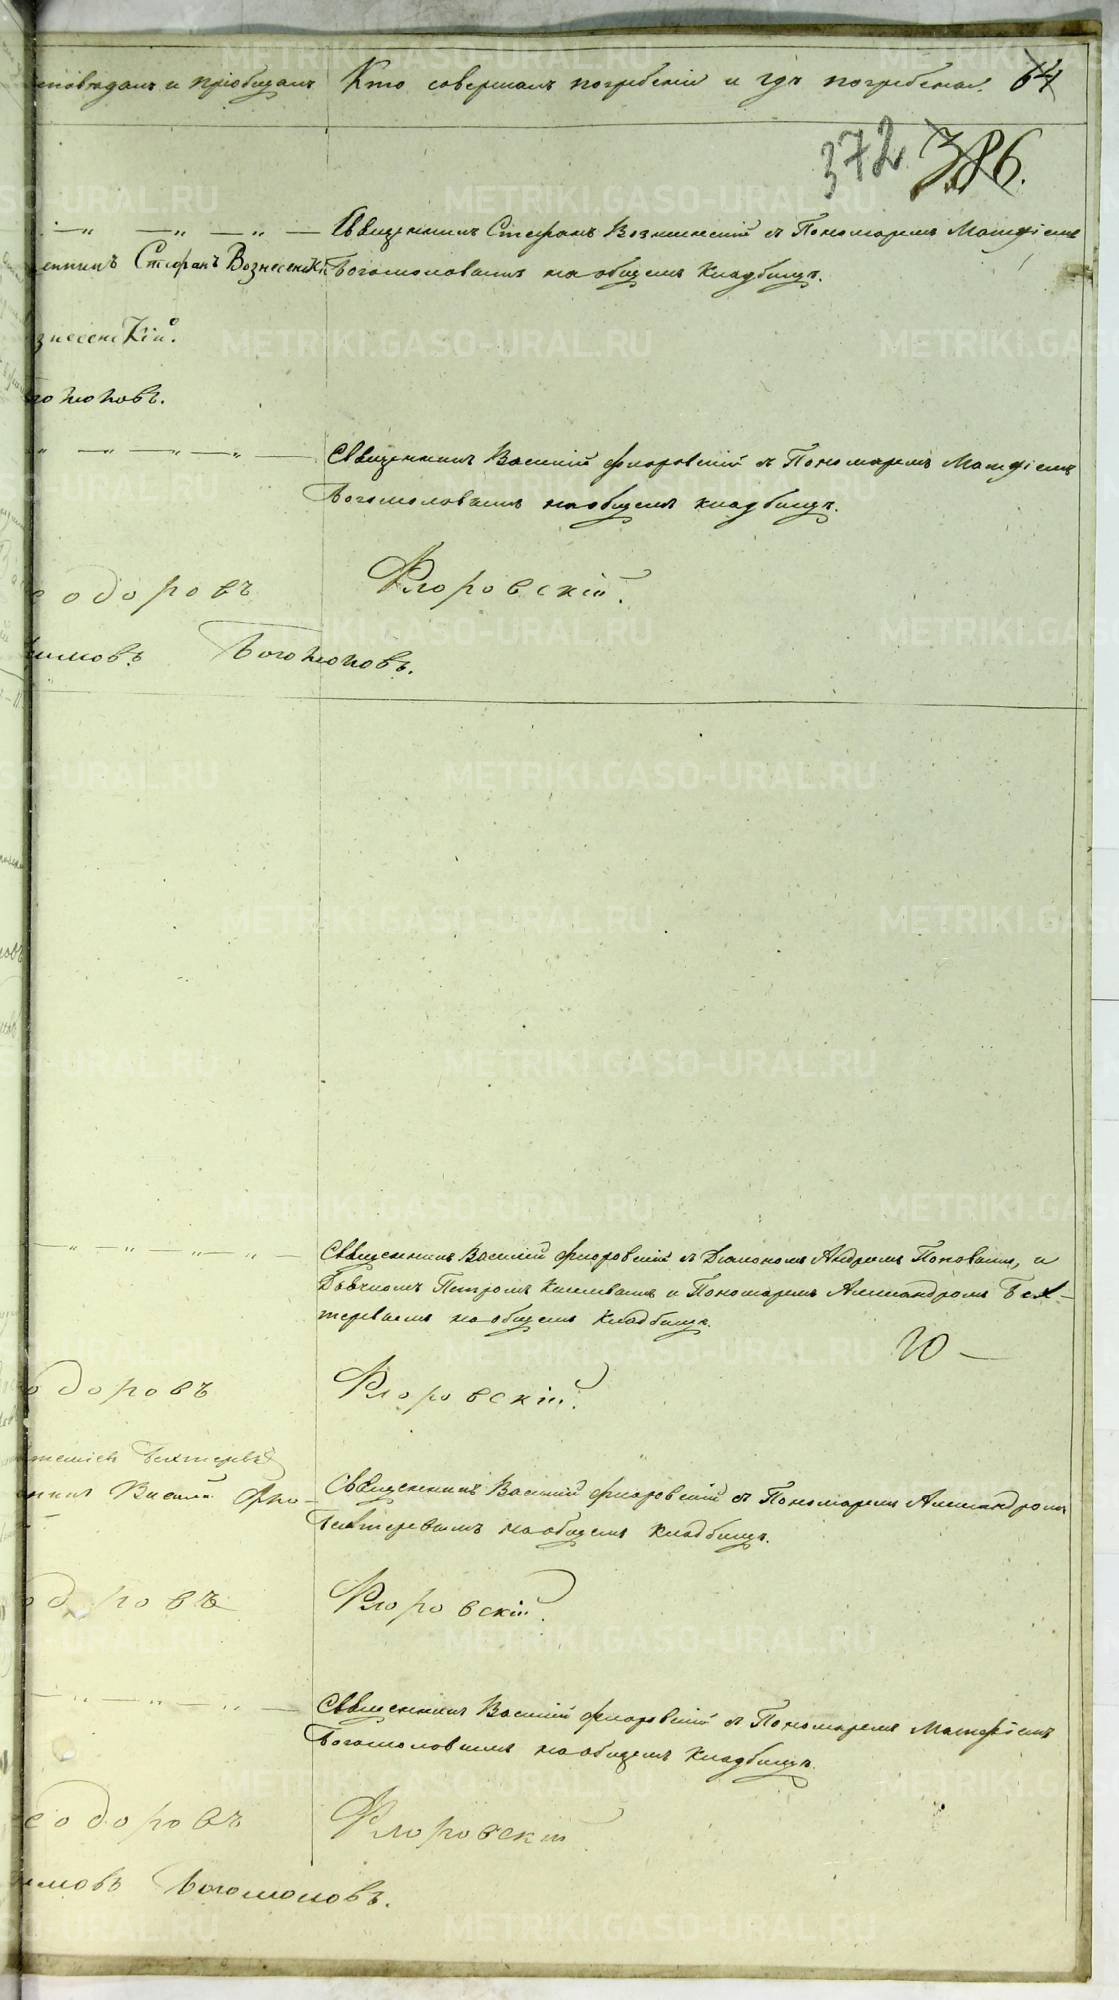 исповѣдалъ и пріобщалъ Кто совершалъ погребеніе и гдѣ погребены. 64
372 386.
Священникъ Стефанъ Вознесенскій съ Пономаремъ Матѳіемъ
Стефанъ Вознесенскій Богомоловымъ на общемъ кладбищѣ.
знесенскій.
Священникъ Василій Флоровскій съ Пономаремъ Матѳіемъ
Богомоловымъ на общемъ кладбищѣ.
еодоровъ Флоровскій.
имовъ Богомоловъ.
Священникъ Василій Флоровскій съ Діакономъ Андреемъ Поповымъ, и
Дьячкомъ Петромъ и Пономаремъ Александромъ Бех-
теревымъ на общемъ кладбищѣ.
10 —
одоровъ Флоровскій.
Бехтеревъ
Василій Фло- Священникъ Василій Флоровскій съ Пономаремъ Александромъ
Бехтеревымъ на общемъ кладбищѣ.
одоровъ Флоровскій.
Священникъ Василій Флоровскій съ Пономаремъ Матѳіемъ
Богомоловымъ на общемъ кладбищѣ.
еодоровъ Флоровскій
имовъ Богомоловъ.
METRIKI.GASO-URAL.RU